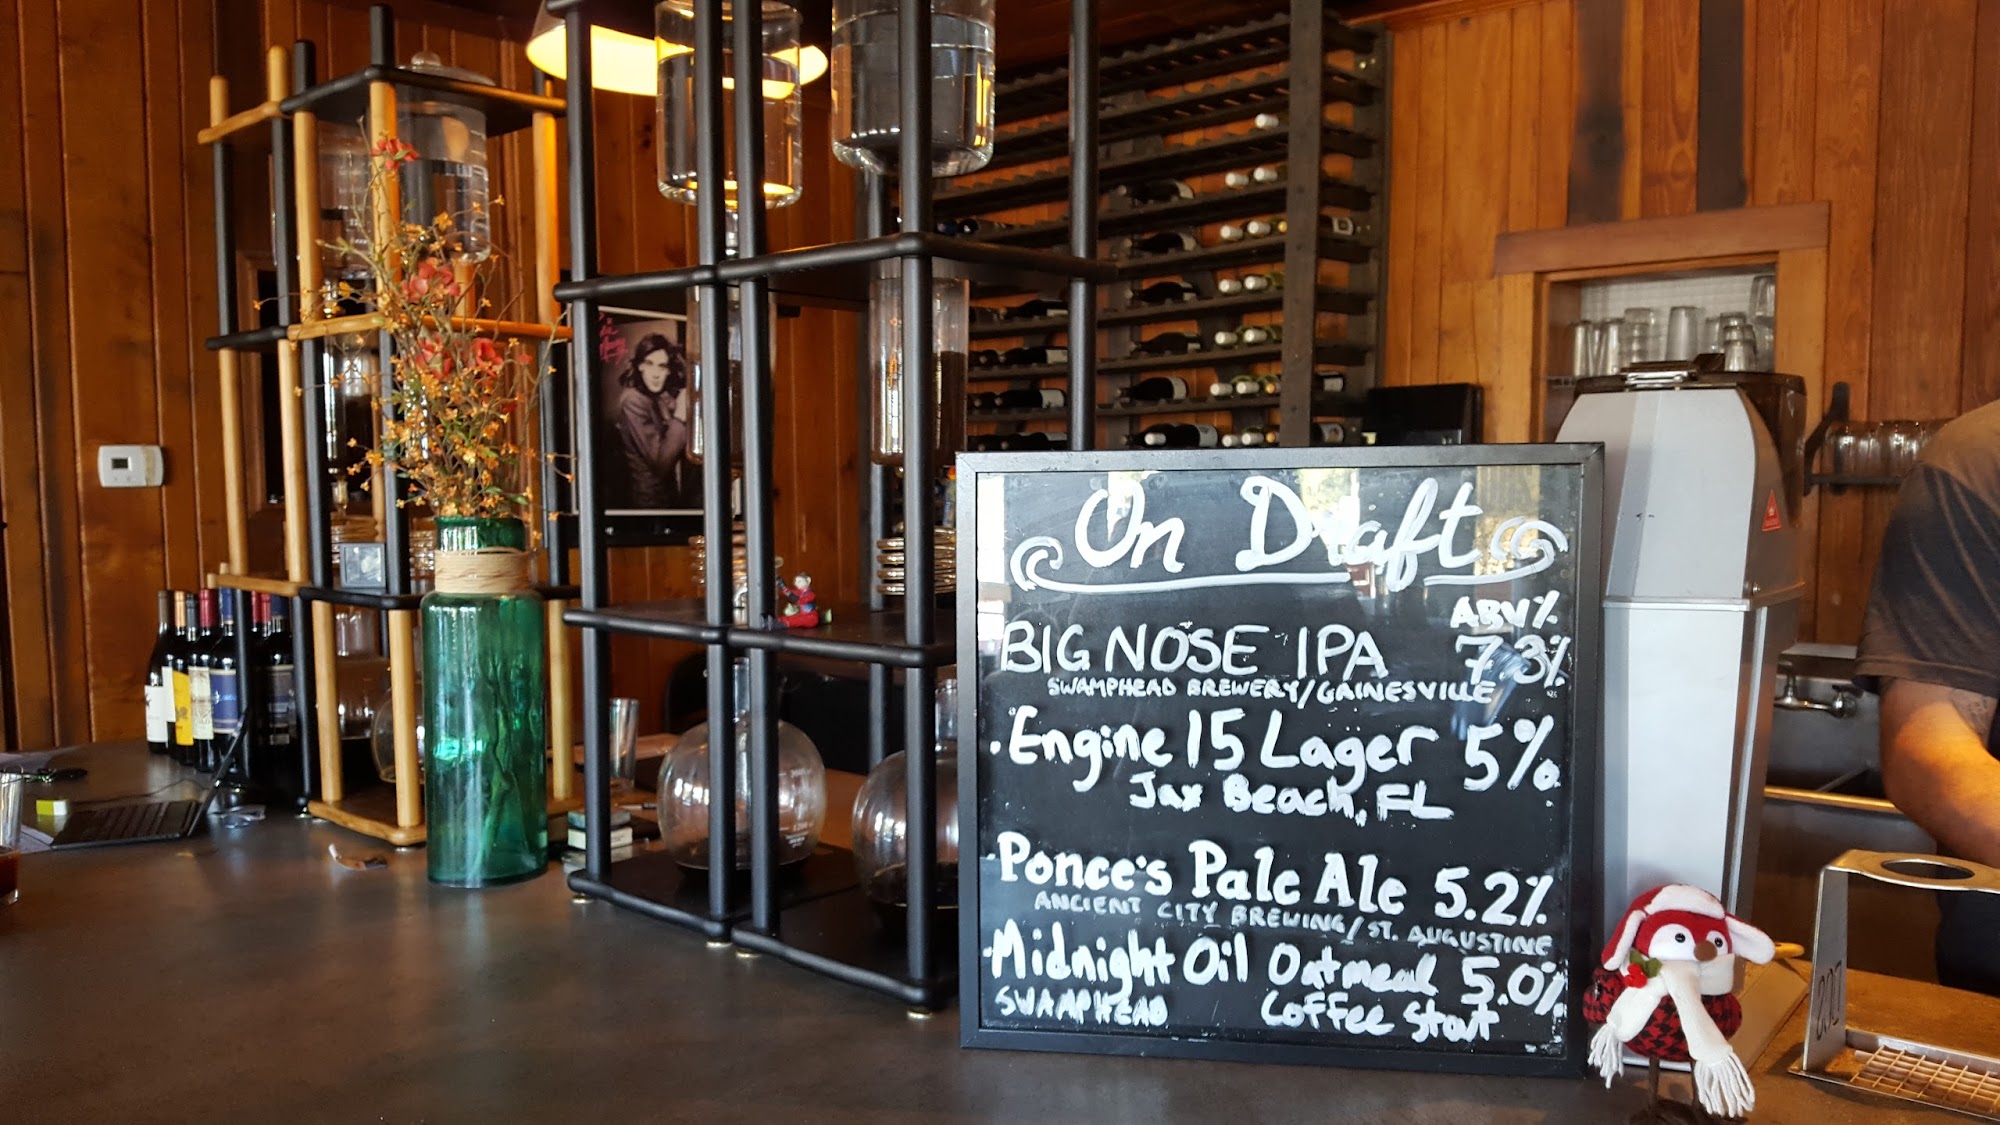 On Draft
ABV%
BIG NOSE IPA 7.3%
SWAMPHEAD BREWERY/GAINESVILLE
· Engine 15 Lager 5%
Jax Beach, FL
· Ponce's Pale Ale 5.2%
ANCIENT CITY BREWING/ST. AUGUSTINE
· Midnight Oil Oatmeal 5.0%
SWAMPHEAD Coffee Stout